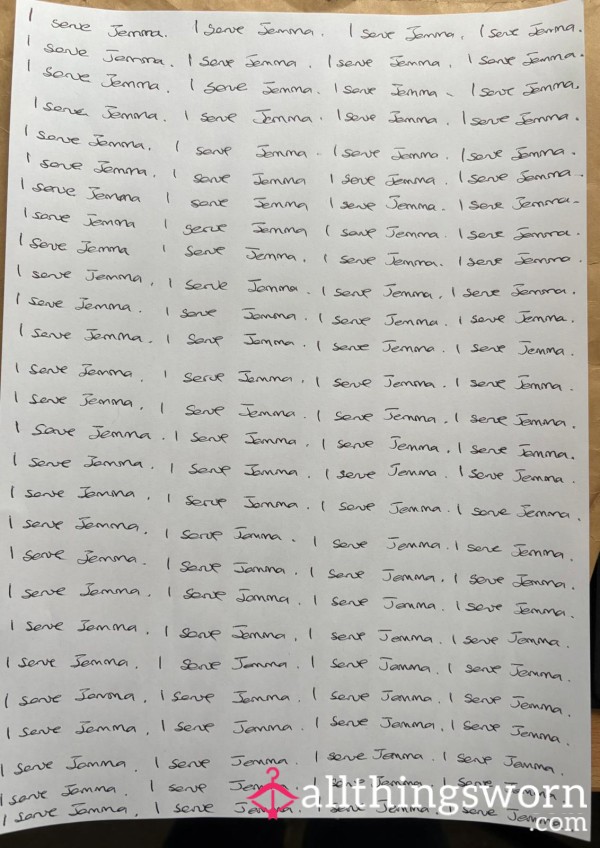 I serve Jemma. I serve Jemma. I serve Jemma. I serve Jemma.
I serve Jemma. I serve Jemma. I serve Jemma. I serve Jemma.
I serve Jemma. I serve Jemma. I serve Jemma - I serve Jemma.
I serve Jemma. I serve Jemma. I serve Jemma. I serve Jemma.
I serve Jemma. I serve Jemma - I serve Jemma. I serve Jemma.
I serve Jemma. I serve Jemma I serve Jemma. I serve Jemma.
I serve Jemma I serve Jemma I serve Jemma. I serve Jemma-
I serve Jemma I serve Jemma I serve Jemma. I serve Jemma.
I serve Jemma I serve Jemma. I serve Jemma. I serve Jemma.
I serve Jemma. I serve Jemma. I serve Jemma. I serve Jemma.
I serve Jemma. I serve Jemma. I serve Jemma. I serve Jemma.
I serve Jemma. I serve Jemma. I serve Jemma. I serve Jemma.
I serve Jemma. I serve Jemma. I serve Jemma. I serve Jemma.
I serve Jemma. I serve Jemma. I serve Jemma. I serve Jemma.
I serve Jemma. I serve Jemma. I serve Jemma. I serve Jemma.
I serve Jemma. I serve Jemma. I serve Jemma. I serve Jemma.
I serve Jemma. I serve Jemma. I serve Jemma. I serve Jemma.
I serve Jemma. I serve Jemma. I serve Jemma. I serve Jemma.
I serve Jemma. I serve Jemma. I serve Jemma. I serve Jemma.
I serve Jemma. I serve Jemma. I serve Jemma. I serve Jemma.
I serve Jemma. I serve Jemma. I serve Jemma. I serve Jemma.
I serve Jemma. I serve Jemma. I serve Jemma. I serve Jemma.
I serve Jemma. I serve Jemma. I serve Jemma. I serve Jemma.
I serve Jemma. I serve Jemma. I serve Jemma. I serve Jemma.
I serve Jemma. I serve Jemma. I serve Jemma. I serve Jemma.
I serve Jemma. I serve Jemma. I serve Jemma. I serve Jemma.
I serve Jemma. I serve Jemma. I serve Jemma. I serve Jemma.
allthingsworn
.com